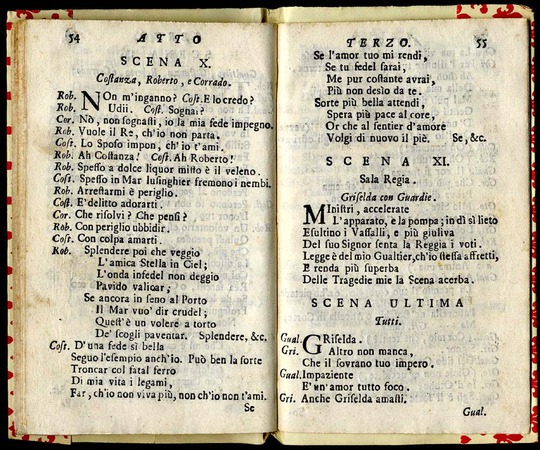 54
ATTO
SCENA X.
Costanza, Roberto, e Corrado.
Rob. NOn m'inganno? Cost. E lo credo?
Rob. Udii. Cost. Sognai?
Cor. Nò, non sognasti, io la mia fede impegno.
Rob. Vuole il Re, ch'io non parta.
Cost. Lo Sposo impon, ch'io t'ami.
Rob. Ah Costanza! Cost. Ah Roberto!
Rob. Spesso a dolce liquor misto è il veleno.
Cost. Spesso in Mar lusinghier fremono i nembi.
Rob. Arrestarmi è periglio.
Cost. E' delitto adorarti.
Cor. Che risolvi? Che pensi?
Rob. Con periglio ubbidir.
Cost. Con colpa amarti.
Rob. Splendere poi che veggio
L'amica Stella in Ciel;
L'onda infedel non deggio
Pavido valicar;
Se ancora in seno al Porto
Il Mar vuo' dir crudel;
Quest'è un volere a torto
De' scogli paventar. Splendere, &c.
Cost. D'una fede sì bella
Seguo l'esempio anch'io. Può ben la sorte
Troncar col fatal ferro
Di mia vita i legami,
Far, ch'io non viva più, non ch'io non t'ami.
Se
TERZO.
55
Se l'amor tuo mi rendi,
Se tu fedel sarai,
Me pur costante avrai,
Più non desìo da te.
Sorte più bella attendi,
Spera più pace al core,
Or che al sentier d'amore
Volgi di nuovo il piè. Se, &c.
SCENA XI.
Sala Regia.
Griselda con Guardie.
MInistri, accelerate
L'apparato, e la pompa; in dì sì lieto
Esultino i Vassalli, e più giuliva
Del suo Signor senta la Reggia i voti.
Legge è del mio Gualtier, ch'io stessa affretti,
E renda più superba
Delle Tragedie mie la Scena acerba.
SCENA ULTIMA
Tutti.
Gual. GRiselda.
Gri. Altro non manca,
Che il sovrano tuo impero.
Gual. Impaziente
E' un' amor tutto foco.
Gri. Anche Griselda amasti.
Gual.